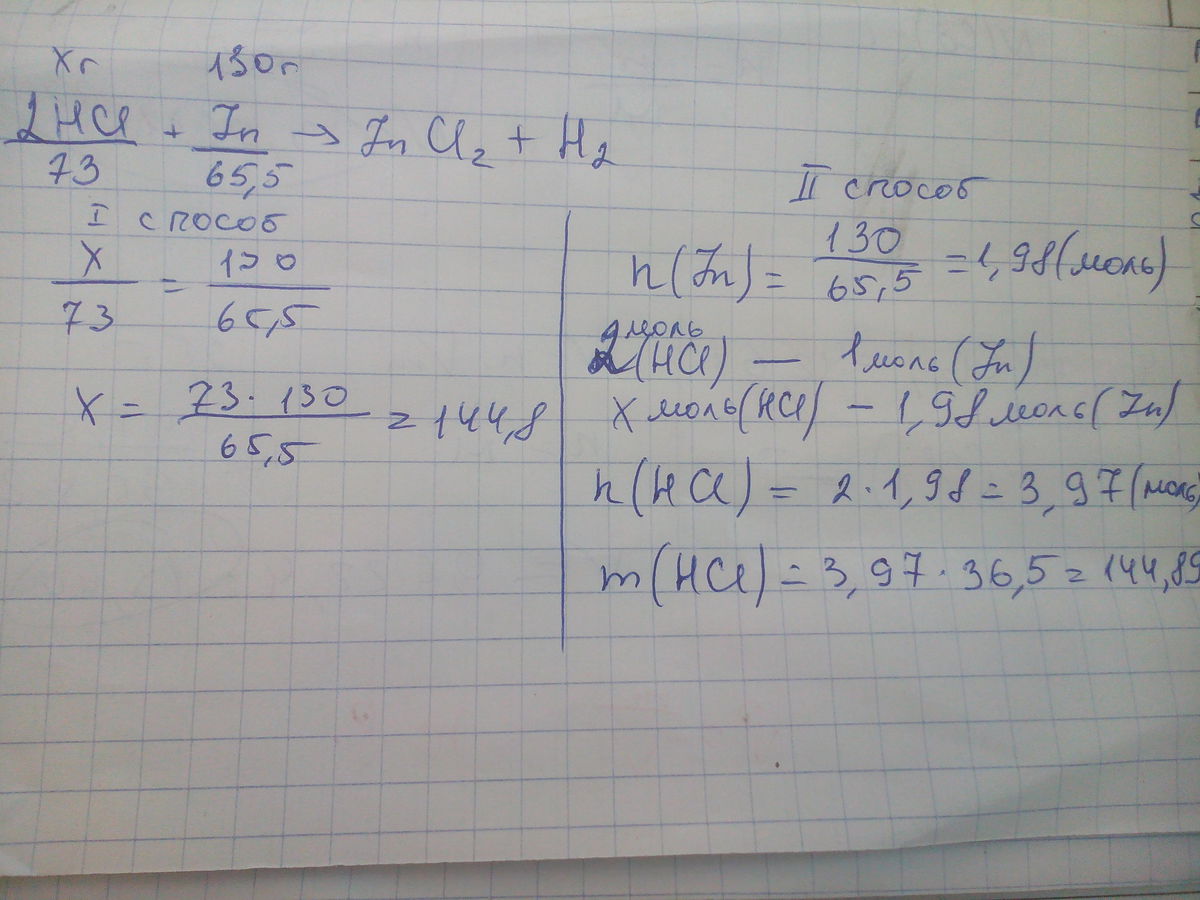 Xг 130г
2HCl + Zn → ZnCl₂ + H₂
73 65,5
I способ
X = 130
73 65,5
X = 73 · 130 = 144,8
65,5
II способ
n(Zn) = 130 = 1,98(моль)
65,5
2моль
(HCl) — 1моль(Zn)
X моль(HCl) – 1,98моль(Zn)
n(HCl) = 2 · 1,98 = 3,97(моль)
m(HCl) = 3,97 · 36,5 = 144,89